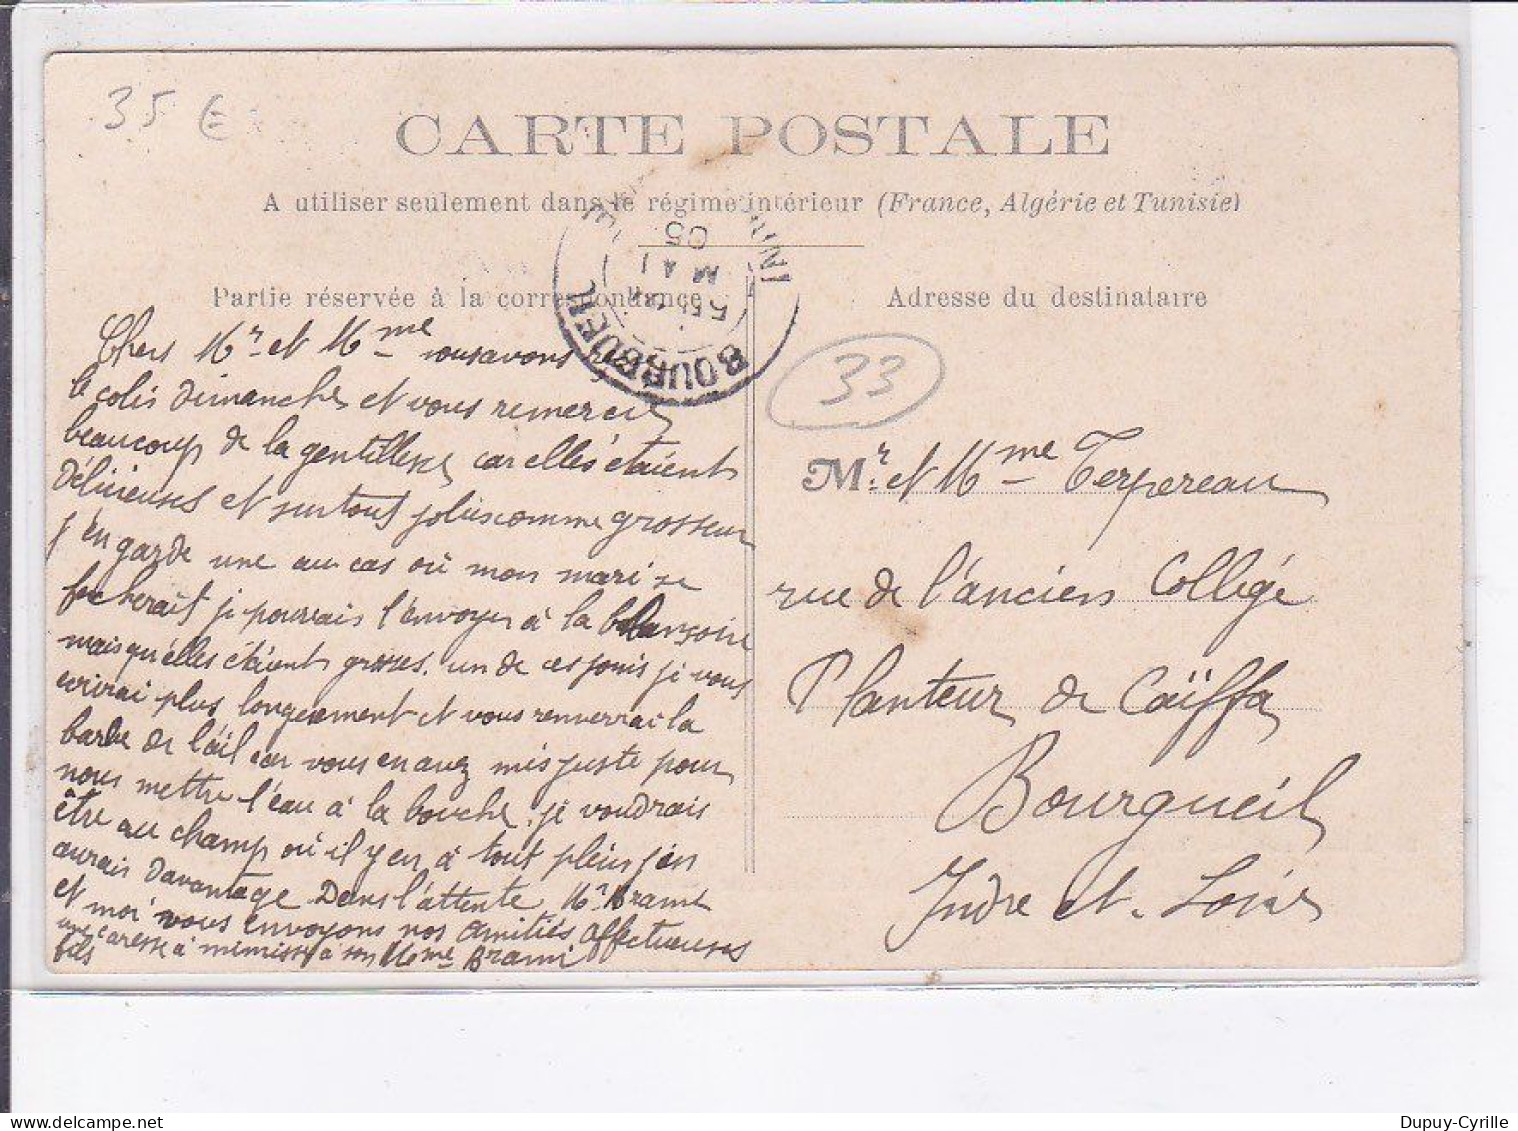 35 €
CARTE POSTALE
A utiliser seulement dans le régime intérieur (France, Algérie et Tunisie)
Partie réservée à la correspondance
Adresse du destinataire
BOURGUEIL
MAI
05
33
Chers Mr et Mme nous avons
le colis dimanche et vous remercie
beaucoup de la gentillesse car elles étaient
délicieuses et surtout jolies comme grosseur
j'en garde une au cas où mon mari se
facherait je pourrais l'envoyer à la balançoire
mais qu'elles étaient grosses. un de ces jours je vous
ecrirai plus longuement et vous renverrai la
barbe de l'ail car vous en avez mis juste pour
nous mettre l'eau à la bouche. je voudrais
être au champ où il y en à tout plein j'en
aurais davantage Dans l'attente Mr Brami
et moi vous envoyons nos amitiés affectueuses
une caresse à mémisse à son Mme Brami
fils
Mr. et Mme Terpereau
rue de l'ancien Collége
Planteur de Caïffa
Bourgueil
Indre et Loire
Dupuy-Cyrille